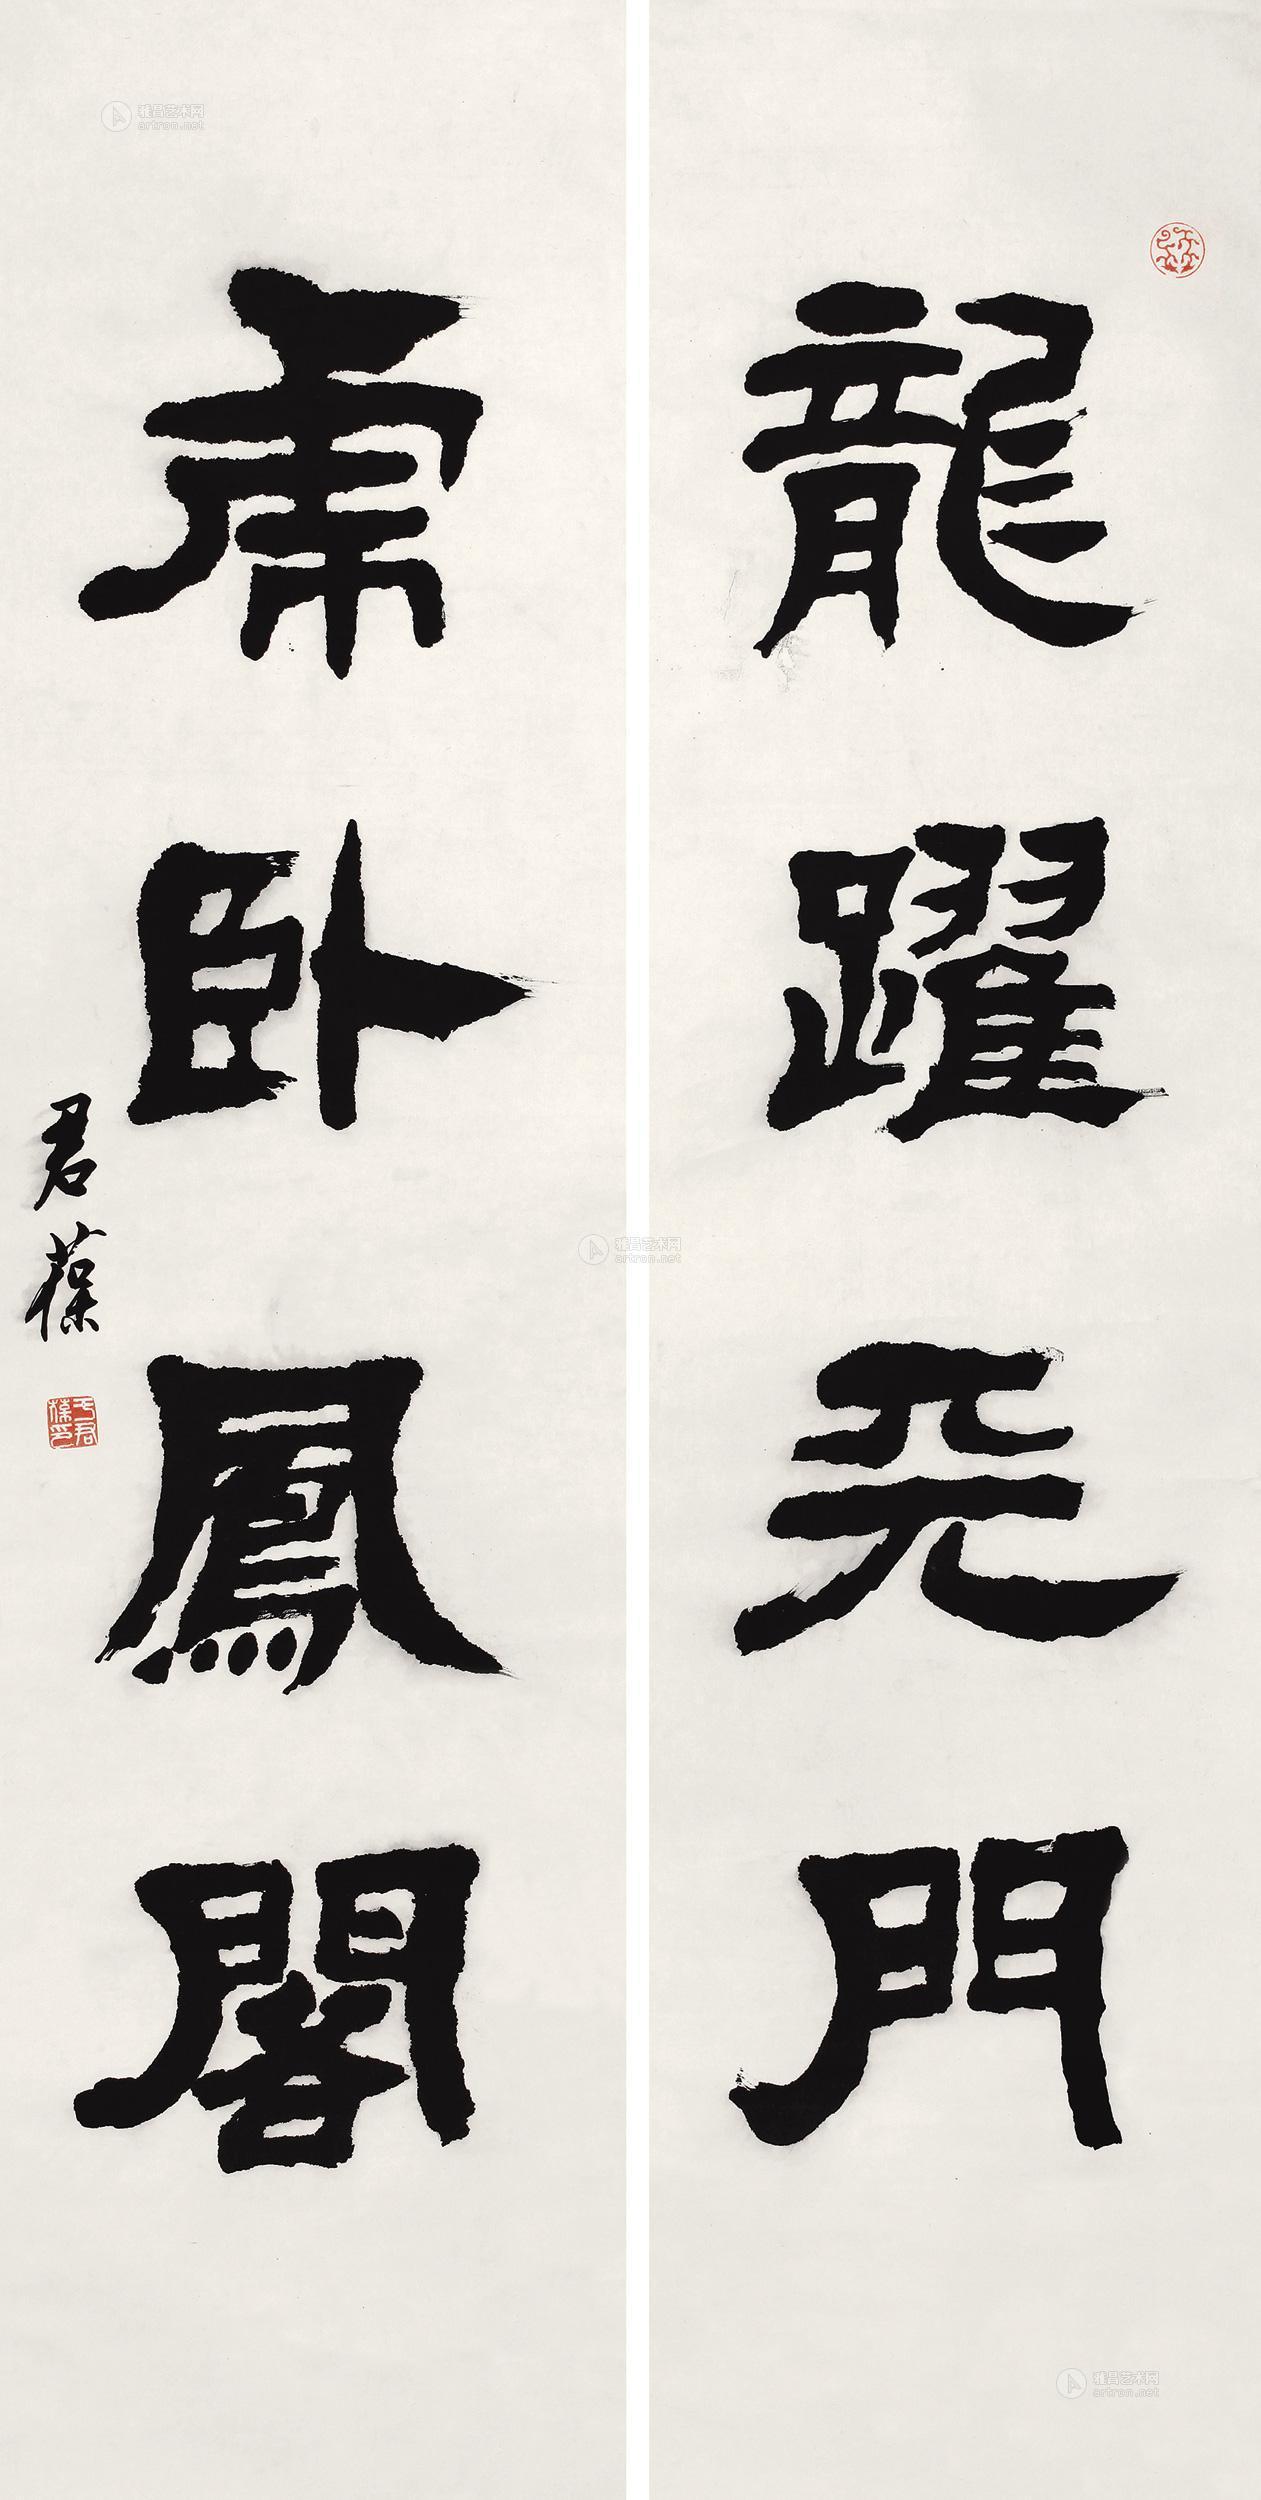 龍躍天門
虎卧鳳閣
君葆
雅昌艺术网
artron.net
雅昌艺术网
artron.net
雅昌艺术网
artron.net